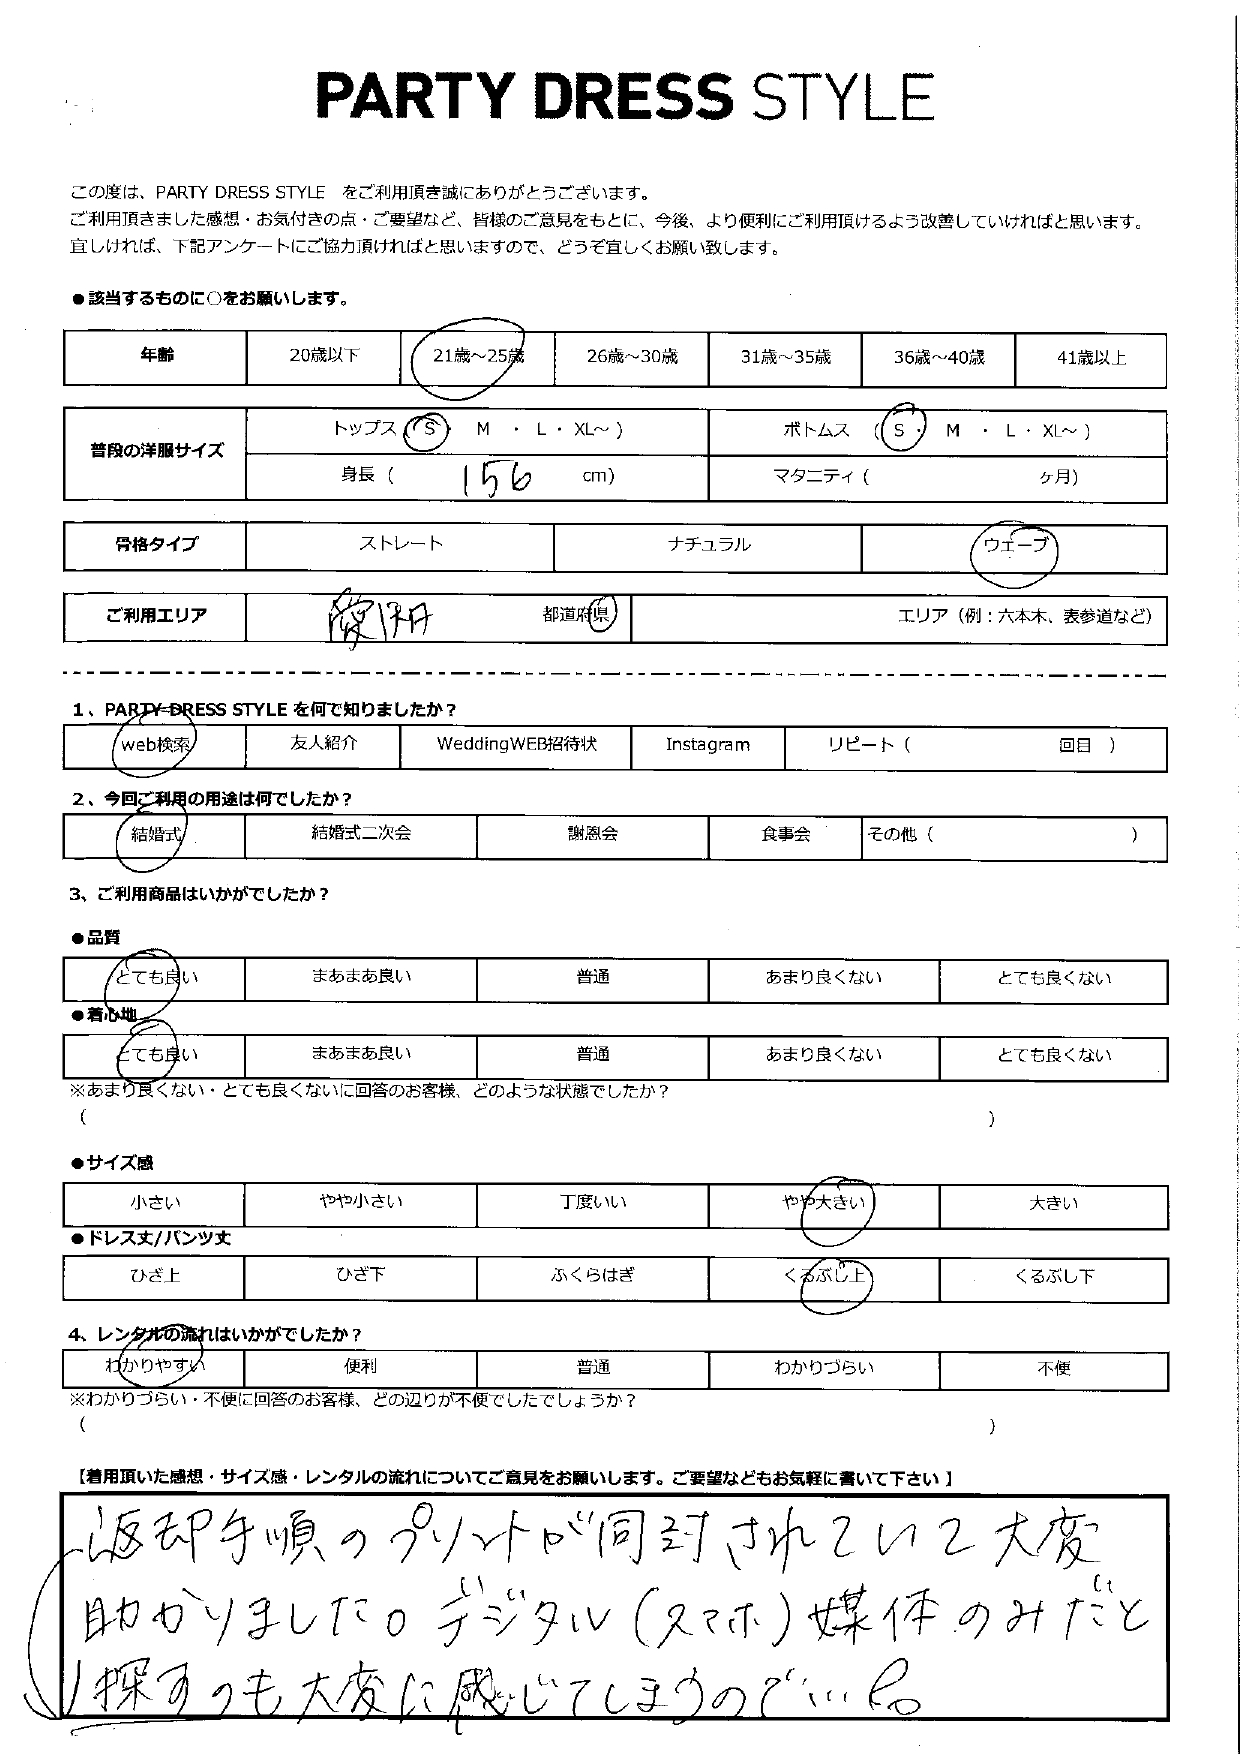 PARTY DRESS STYLE
この度は、PARTY DRESS STYLE をご利用頂き誠にありがとうございます。
ご利用頂きました感想・お気付きの点・ご要望など、皆様のご意見をもとに、今後、より便利にご利用頂けるよう改善していければと思います。
宜しければ、下記アンケートにご協力頂ければと思いますので、どうぞ宜しくお願い致します。
●該当するものに○をお願いします。
年齢 20歳以下 21歳～25歳 26歳～30歳 31歳～35歳 36歳～40歳 41歳以上
普段の洋服サイズ トップス (S・ M ・ L・ XL～ ) ボトムス (S・ M ・ L・ XL～ )
身長 ( 156 cm) マタニティ ( ヶ月)
骨格タイプ ストレート ナチュラル ウェーブ
ご利用エリア 愛知 都道府県 エリア（例：六本木、表参道など）
1、PARTY DRESS STYLE を何で知りましたか？
web検索 友人紹介 WeddingWEB招待状 Instagram リピート ( 回目 )
2、今回ご利用の用途は何でしたか？
結婚式 結婚式二次会 謝恩会 食事会 その他 ( )
3、ご利用商品はいかがでしたか？
●品質
とても良い まあまあ良い 普通 あまり良くない とても良くない
●着心地
とても良い まあまあ良い 普通 あまり良くない とても良くない
※あまり良くない・とても良くないに回答のお客様、どのような状態でしたか？
( )
●サイズ感
小さい やや小さい 丁度いい やや大きい 大きい
●ドレス丈/パンツ丈
ひざ上 ひざ下 ふくらはぎ くるぶし上 くるぶし下
4、レンタルの流れはいかがでしたか？
わかりやすい 便利 普通 わかりづらい 不便
※わかりづらい・不便に回答のお客様、どの辺りが不便でしたでしょうか？
( )
【着用頂いた感想・サイズ感・レンタルの流れについてご意見をお願いします。ご要望などもお気軽に書いて下さい】
返却手順のプリントが同封されていて大変
助かりました。デジタル(スマホ)媒体のみだと
探すのも大変に感じてしまうので…